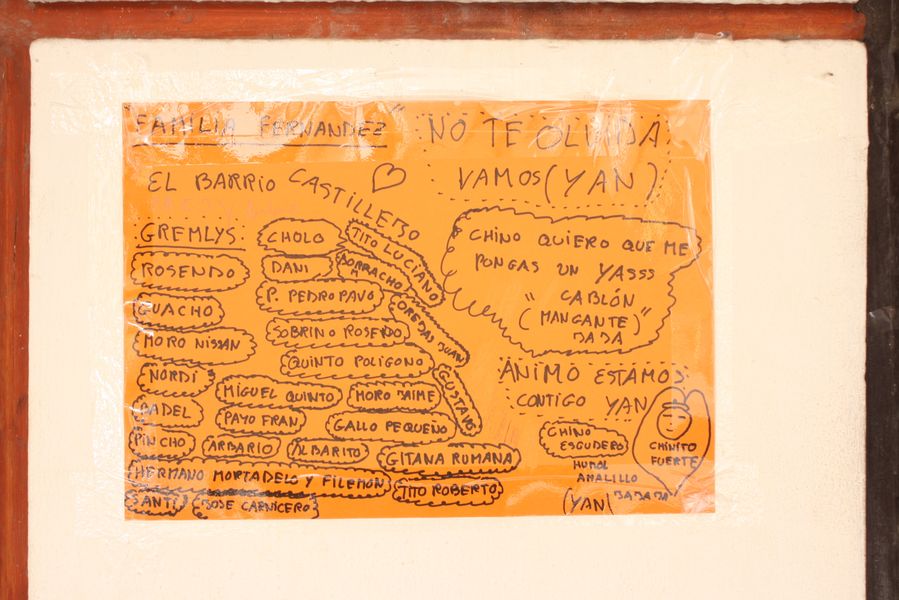 FAMILIA FERNANDEZ"
NO TE OLVIDA
VAMOS (YAN)
EL BARRIO CASTILLEJO
GREMLYS
ROSENDO
GUACHO
MORO NISSAN
NORDI
BADEL
PINCHO
HERMANO MORTADELO Y FILEMON
SANTI
JOSE CARNICERO
CHOLO
DANI
P. PEDRO PAVO
SOBRINO ROSENDO
QUINTO POLIGONO
MIGUEL QUINTO
MORO JAIME
PAYO FRAN
GALLO PEQUEÑO
ARBARIO
ALBARITO
GITANA RUMANA
TITO ROBERTO
TITO LUCIANO
BORRACHO
JUAN
GUSTAVO
CHINO QUIERO QUE ME
PONGAS UN YASSS
"CABLÓN
(MANGANTE)"
JAJA
ÁNIMO ESTAMOS
CONTIGO YAN
CHINO
ESCUDERO
HUMOL
AMALILLO
(YAN( JAJAJA
CHINITO
FUERTE